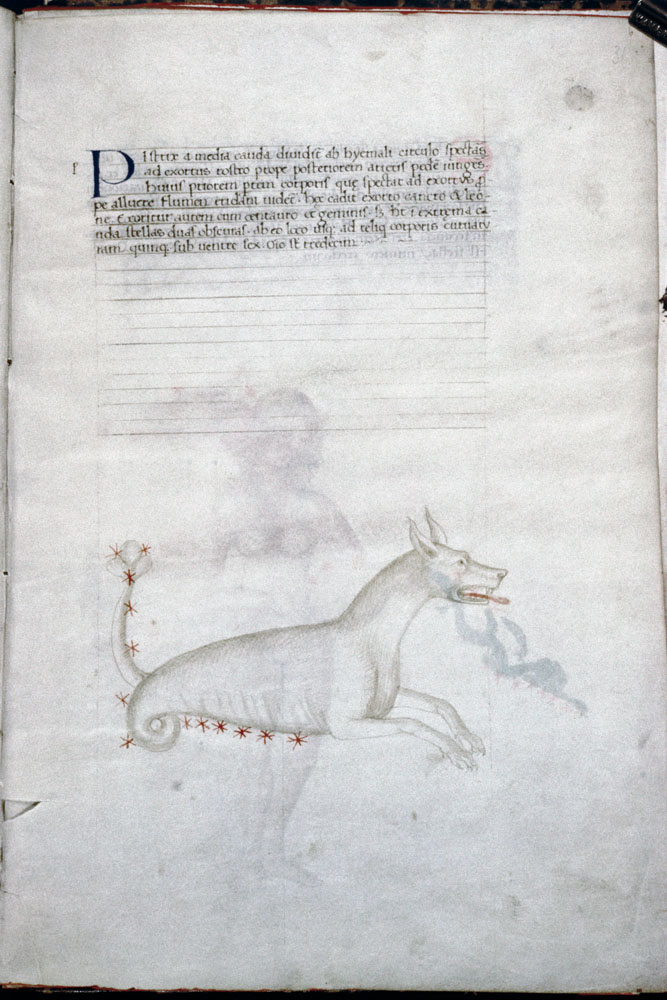 P
Pistrix a media cauda diuidit ab hyemali circulo spectās
ad exortus rostro prope posteriorem arietis pedē
huius priorem ptem corporis que spectat ad exortus
pe alluere flumen eridani uidet . hec cadit exorto cancro & leo
ne . Exoritur autem cum centauro et geminis . S; ht ī extrema ca
uda stellas duas obscuras . ab eo loco usq; ad reliq corporis curuatu
ram quinq; sub uentre sex . oīo st tredecim